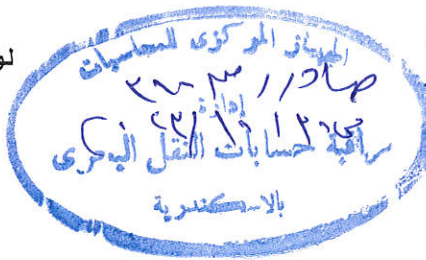 لو
الجهاز المركزى للمحاسبات
صادر /
إدارة
مراقبة حسابات النقل البحرى
بالاسكندرية